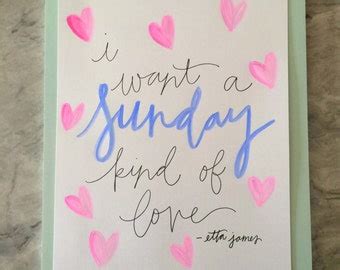 i
want a
sunday
kind of
love
-etta james